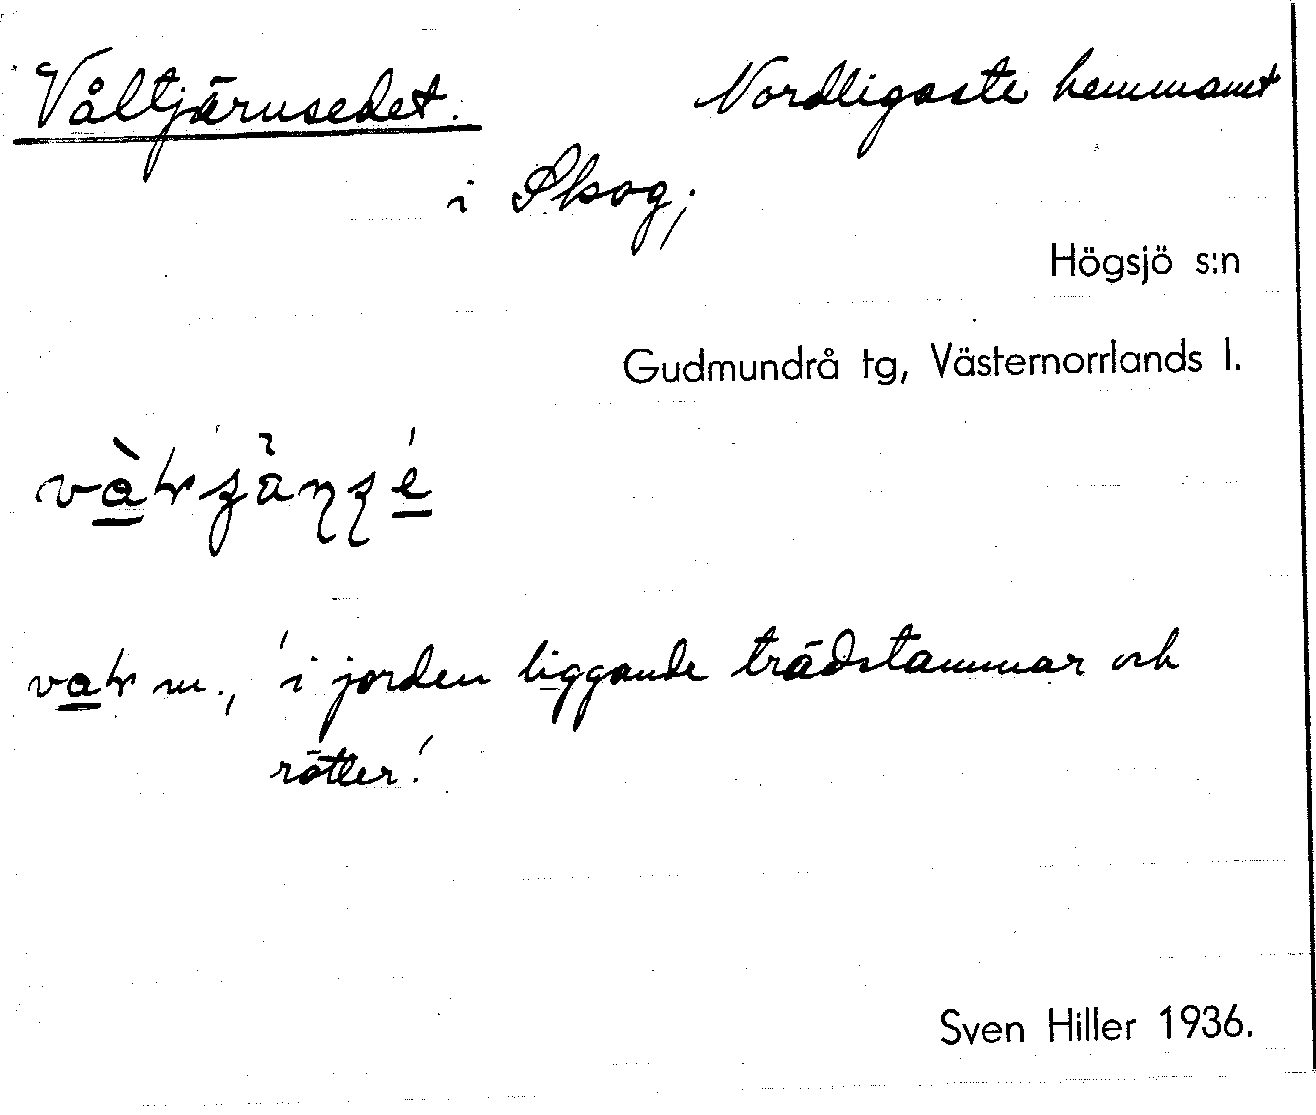 Våltjärnsedet. Nordligaste hemmanet
i Skog;
Högsjö s:n
Gudmundrå tg, Västernorrlands l.
m., 'i jorden liggande trädstammar och
rötter'.
Sven Hiller 1936.